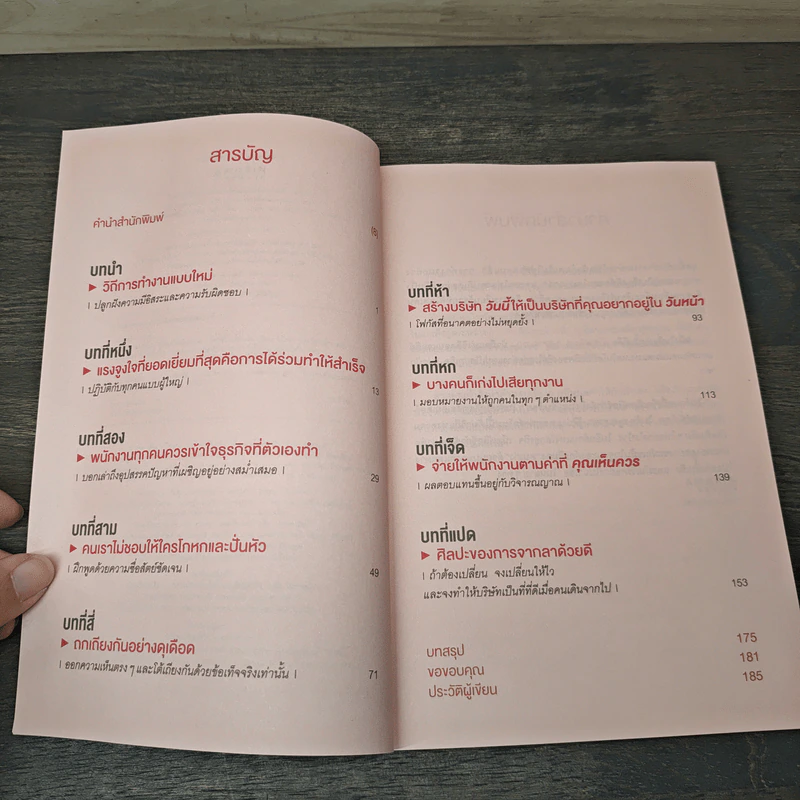 สารบัญ
คำนำสำนักพิมพ์ (8)
บทนำ
▶ วิถีการทำงานแบบใหม่
| ปลูกฝังความมีอิสระและความรับผิดชอบ | 1
บทที่หนึ่ง
▶ แรงจูงใจที่ยอดเยี่ยมที่สุดคือการได้ร่วมทำให้สำเร็จ
| ปฏิบัติกับทุกคนแบบผู้ใหญ่ | 13
บทที่สอง
▶ พนักงานทุกคนควรเข้าใจธุรกิจที่ตัวเองทำ
| บอกเล่าถึงอุปสรรคปัญหาที่เผชิญอยู่อย่างสม่ำเสมอ | 29
บทที่สาม
▶ คนเราไม่ชอบให้ใครโกหกและปั่นหัว
| ฝึกพูดด้วยความซื่อสัตย์ชัดเจน | 49
บทที่สี่
▶ ถกเถียงกันอย่างดุเดือด
| ออกความเห็นตรง ๆ และโต้เถียงกันด้วยข้อเท็จจริงเท่านั้น | 71
บทที่ห้า
▶ สร้างบริษัท วันนี้ ให้เป็นบริษัทที่คุณอยากอยู่ใน วันหน้า
| โฟกัสที่อนาคตอย่างไม่หยุดยั้ง | 93
บทที่หก
▶ บางคนก็เก่งไปเสียทุกงาน
| มอบหมายงานให้ถูกคนในทุก ๆ ตำแหน่ง | 113
บทที่เจ็ด
▶ จ่ายให้พนักงานตามค่าที่ คุณเห็นควร
| ผลตอบแทนขึ้นอยู่กับวิจารณญาณ | 139
บทที่แปด
▶ ศิลปะของการจากลาด้วยดี
| ถ้าต้องเปลี่ยน จงเปลี่ยนให้ไว
และจงทำให้บริษัทเป็นที่ที่ดีเมื่อคนเดินจากไป | 153
บทสรุป 175
ขอขอบคุณ 181
ประวัติผู้เขียน 185